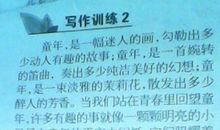 写作训练2
童年,是一幅迷人的画,勾勒出多
少动人有趣的故事;童年,是一首婉转
的笛曲,奏出多少纯洁美好的幻想;童
年,是一束淡雅的茉莉花,散发出多少
醉人的芳香。当我们站在青春里回望童
年,许多有趣的事就像一颗颗明亮的小